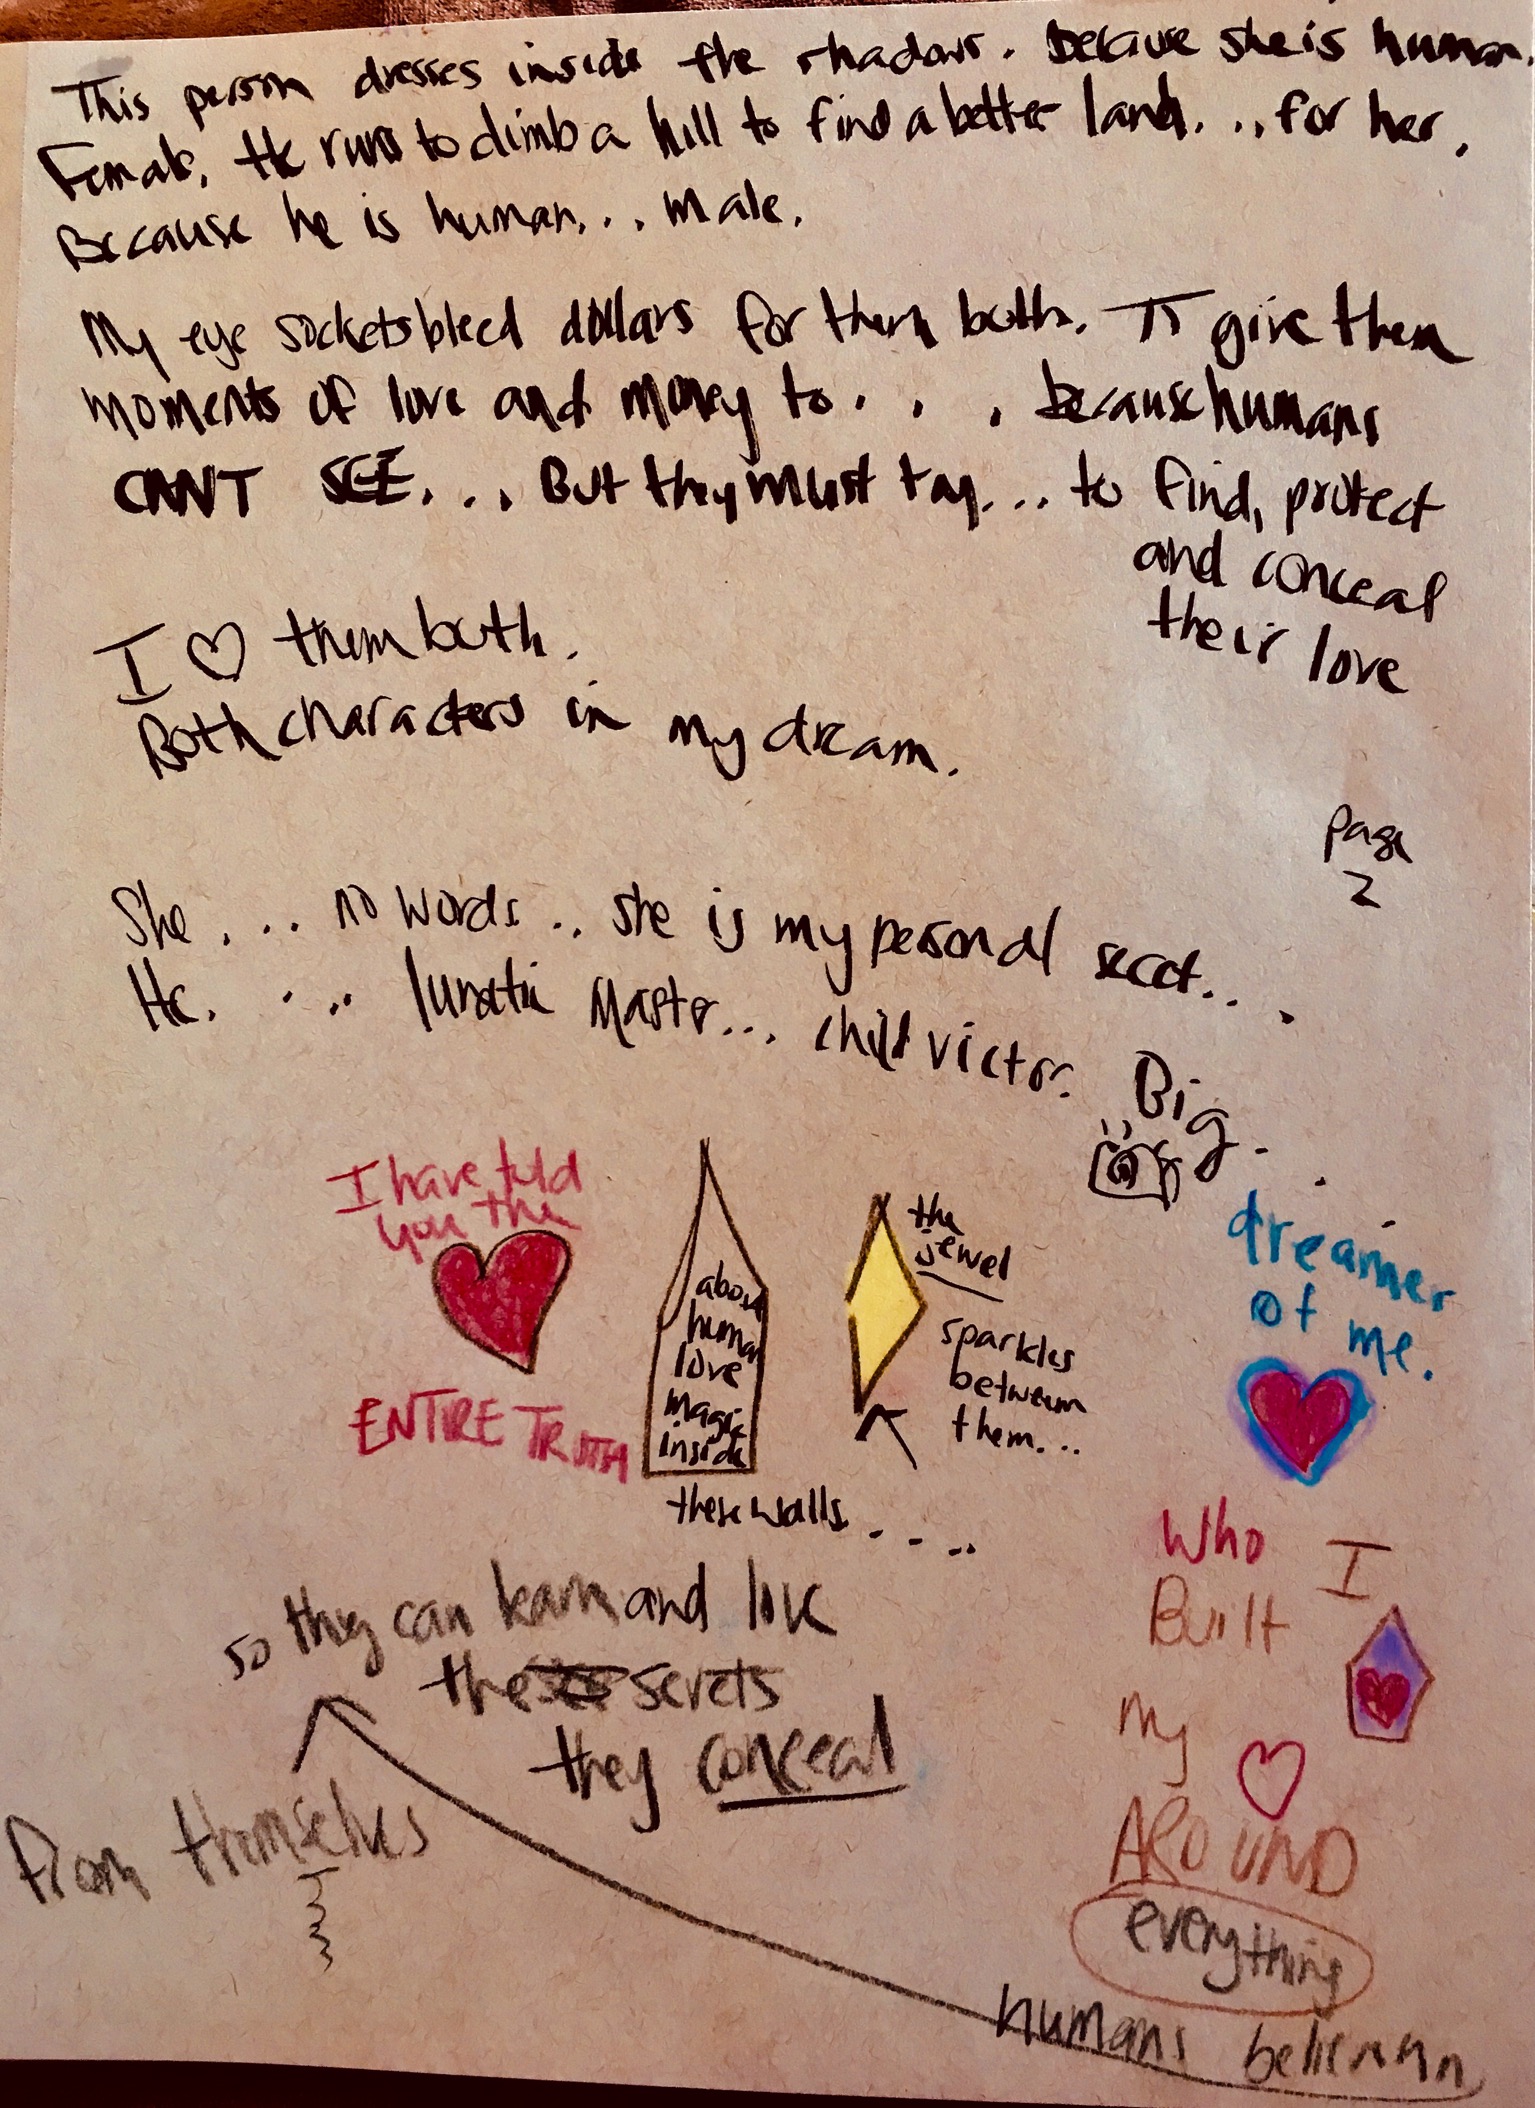 This person dresses inside the shadows. Because she is human.
Female. He runs to climb a hill to find a better land. .., for her.
Because he is human. . . male.
My eye sockets bleed dollars for them both. I give them
moments of love and money to . . . because humans
CANT SEE. . . But they must try. . . to find, protect
and conceal
their love
I ♡ them both.
Both characters in my dream.
Page
2
She . . . no words .. she is my personal secret.. .
He. . .. lunatic Master... child victor. Big. . .
I have told
you the
ENTIRE TRUTH
about
human
love
magic
inside
these walls. . . ..
the
jewel
sparkles
between
them...
dreamer
of me.
Who I
Built
my ♡
AROUND
everything
humans believe in
so they can learn and live
the secrets
they conceal
from themselves